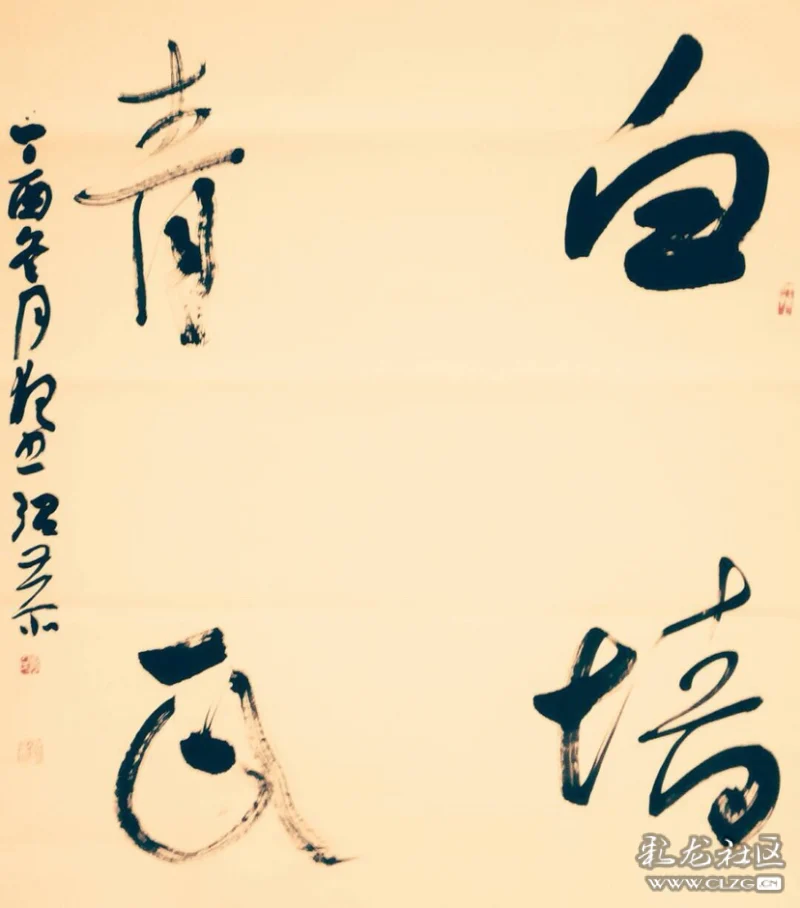 白墙
青瓦
丁酉冬月
彩龙社区
WWW.CLZG.CN